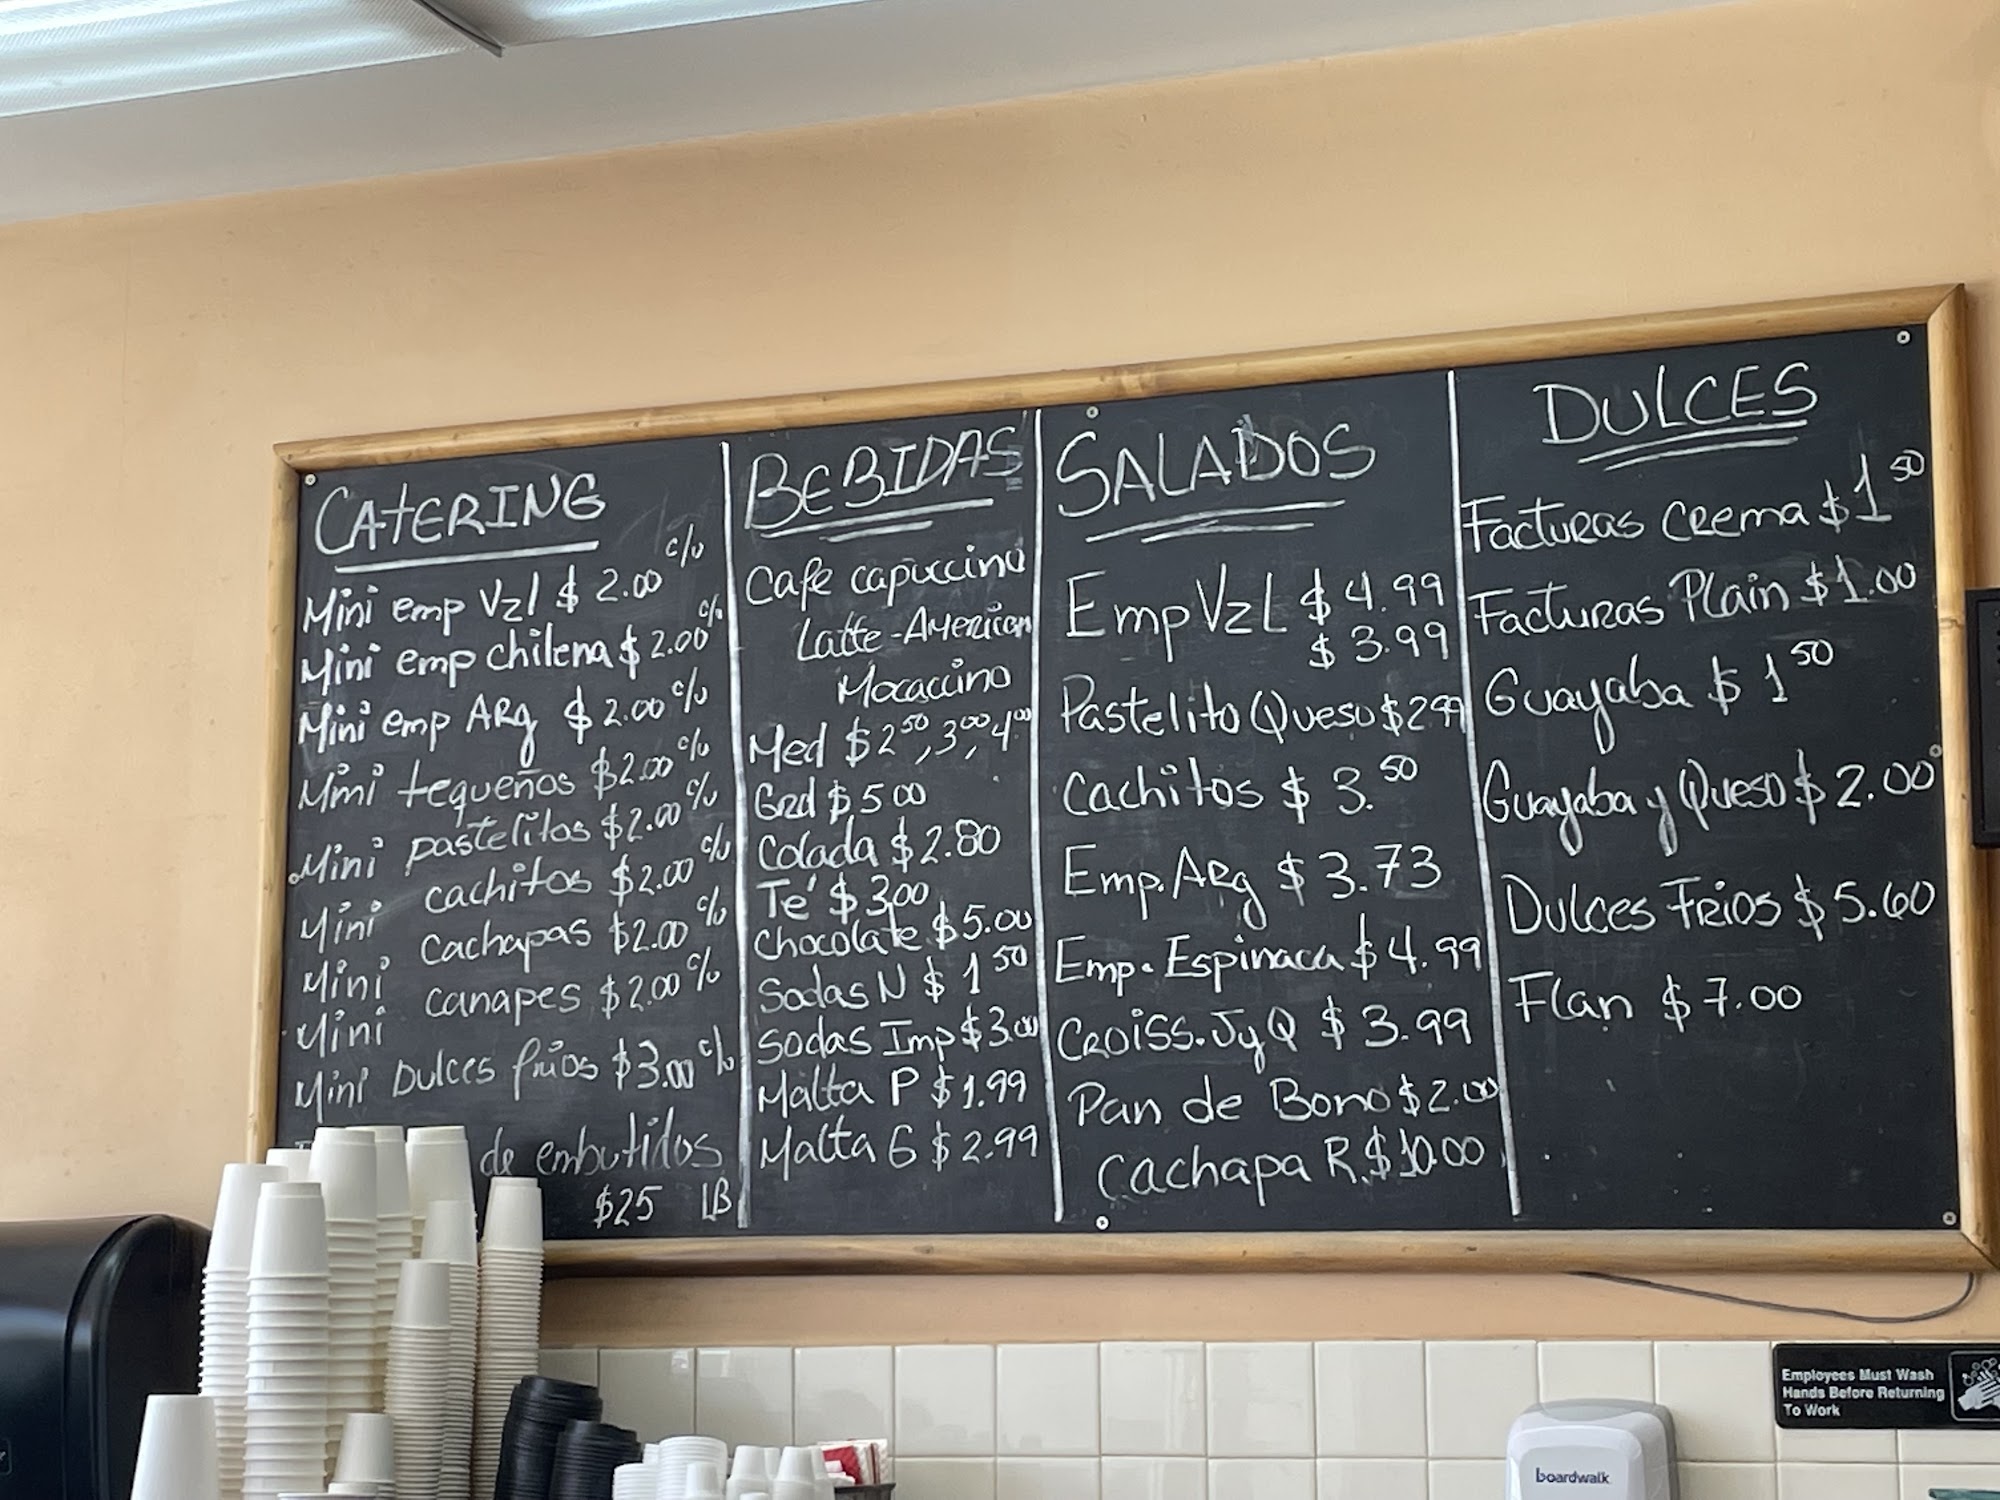 CATERING
Mini emp Vzl $ 2.00 c/u
Mini emp chilena $ 2.00 c/u
Mini emp ARg $ 2.00 c/u
Mini tequeños $2.00 c/u
Mini pastelitos $2.00 c/u
Mini cachitos $2.00 c/u
Mini cachapas $2.00 c/u
Mini canapes $2.00 c/u
Mini Dulces frios $3.00 c/u
de embutidos
$25 LB
BEBIDAS
Cafe capuccino
Latte-American
Mocaccino
Med $2.50, 3.00, 4.00
Grd $5.00
Colada $2.80
Té $3.00
Chocolate $5.00
Sodas N $1.50
Sodas Imp $3.00
Malta P $1.99
Malta G $2.99
SALADOS
Emp Vzl $4.99
$3.99
Pastelito Queso $2.99
Cachitos $3.50
Emp. ARg $3.73
Emp. Espinaca $4.99
Croiss. J y Q $3.99
Pan de Bono $2.00
Cachapa R. $10.00
DULCES
Facturas Crema $1.50
Facturas Plain $1.00
Guayaba $1.50
Guayaba y Queso $2.00
Dulces Frios $5.60
Flan $7.00
Employees Must Wash
Hands Before Returning
To Work
boardwalk